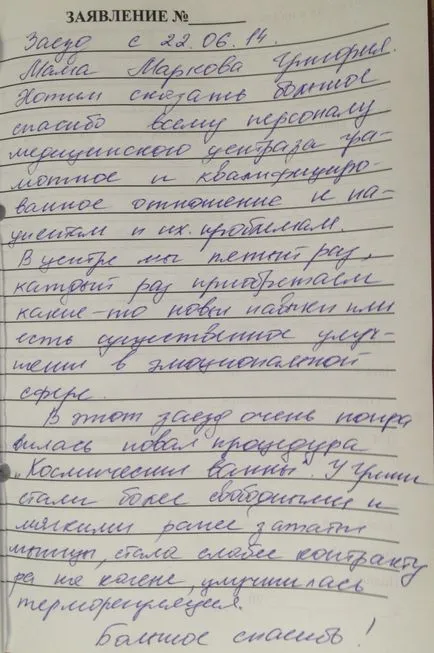 ЗАЯВЛЕНИЕ №
Заезд с 22.06.14.
Мама Маркова Григория.
Хотим сказать большое
спасибо всему персоналу
медицинского центра за гра-
мотное и квалифициро-
ванное отношение к па-
циентам и их проблемам.
В центре мы пятый раз,
каждый раз приобретаем
какие-то новые навыки или
есть существенное улуч-
шение в эмоциональной
сфере.
В этот заезд очень понра
вилась новая процедура
"Космические ванны". У Гриши
стали более свободными и
мягкими ранее зажатые
мышцы, стала слабее контракту
ра на колене, улучшилась
терморегуляция.
Большое спасибо!